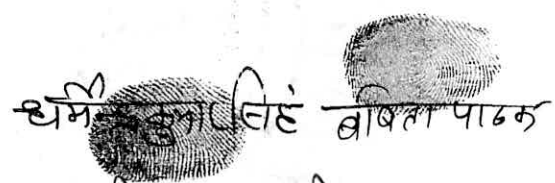 धर्मेन्द्र कुमार सिंह बबिता पाठक